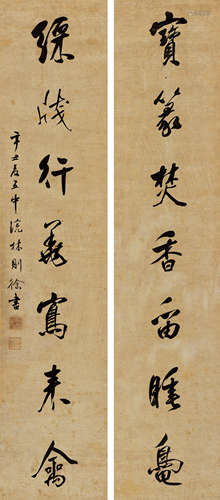 寶篆焚香留睡鴨
綵牋行墨寫來禽
辛丑夏五中浣林則徐書